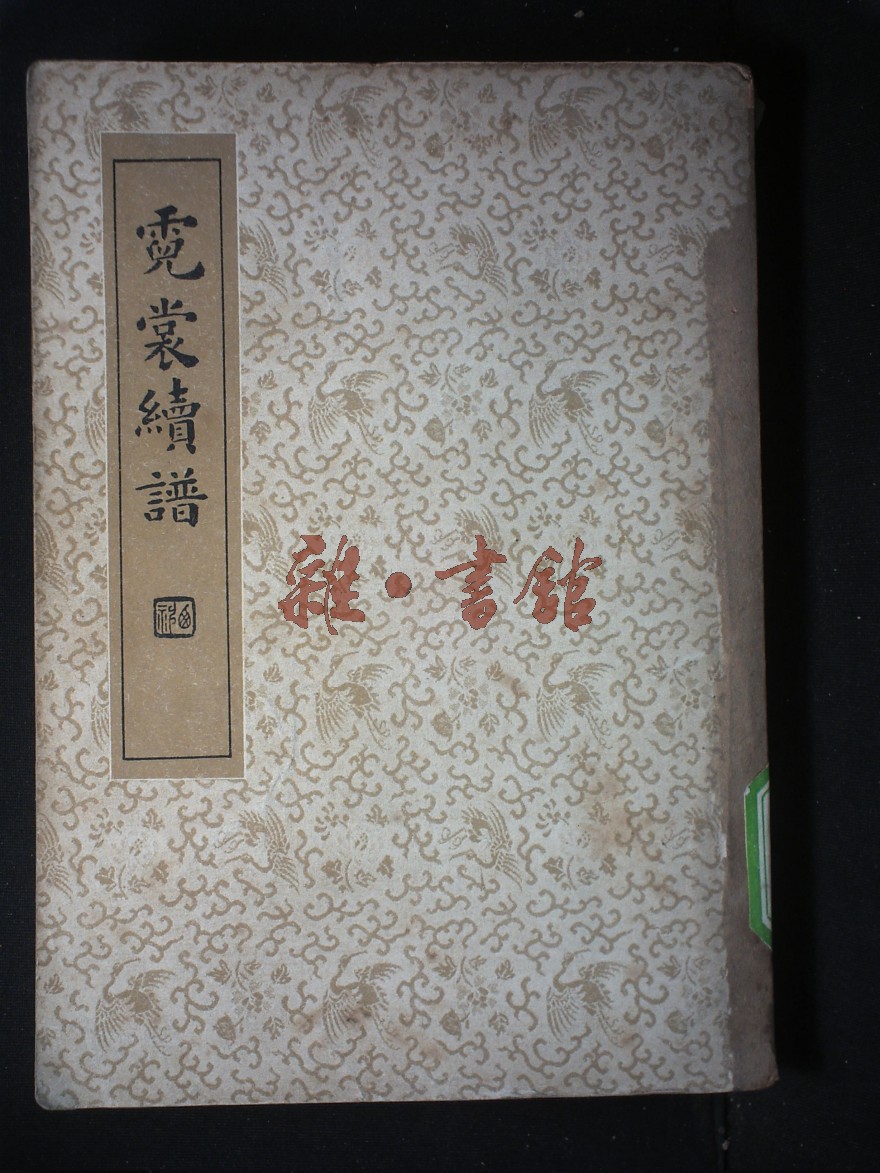 霓裳續譜
雜·書館